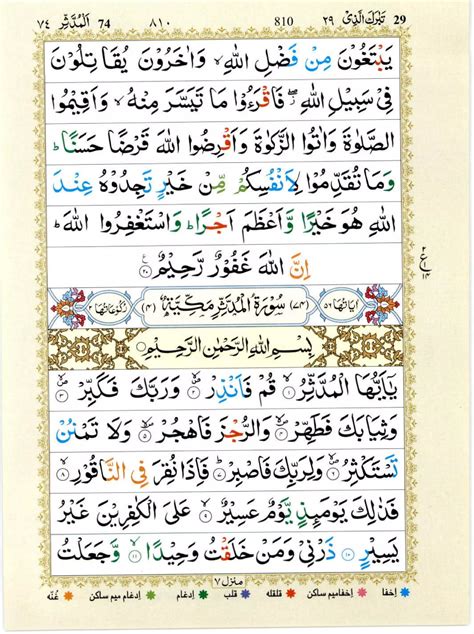 29 تَبٰرَكَ الَّذِیْ ٢٩ 810 ٨١٠ 74 اَلْمُدَّثِّر ٧٤
یَبْتَغُوْنَ مِنْ فَضْلِ اللّٰهِ ۙ وَاٰخَرُوْنَ یُقَاتِلُوْنَ
فِیْ سَبِیْلِ اللّٰهِ ۖ فَاقْرَءُوْا مَا تَیَسَّرَ مِنْهُ ۙ وَاَقِیْمُوا
الصَّلٰوةَ وَاٰتُوا الزَّكٰوةَ وَاَقْرِضُوا اللّٰهَ قَرْضًا حَسَنًا ؕ
وَمَا تُقَدِّمُوْا لِاَنْفُسِكُمْ مِّنْ خَیْرٍ تَجِدُوْهُ عِنْدَ
اللّٰهِ هُوَ خَیْرًا وَّاَعْظَمَ اَجْرًا ؕ وَاسْتَغْفِرُوا اللّٰهَ ؕ
اِنَّ اللّٰهَ غَفُوْرٌ رَّحِیْمٌ ۝٢٠
٢
ع
١٤
اٰیَاتُهَا ٥٦ (٧٤) سُوْرَةُ الْمُدَّثِّرِ مَكِّیَّةٌ (٤) رُكُوْعَاتُهَا ٢
بِسْمِ اللّٰهِ الرَّحْمٰنِ الرَّحِیْمِ
یٰۤاَیُّهَا الْمُدَّثِّرُ ۝١ قُمْ فَاَنْذِرْ ۝٢ وَرَبَّكَ فَكَبِّرْ ۝٣
وَثِیَابَكَ فَطَهِّرْ ۝٤ وَالرُّجْزَ فَاهْجُرْ ۝٥ وَلَا تَمْنُنْ
تَسْتَكْثِرُ ۝٦ وَلِرَبِّكَ فَاصْبِرْ ۝٧ فَاِذَا نُقِرَ فِی النَّاقُوْرِ ۝٨
فَذٰلِكَ یَوْمَئِذٍ یَّوْمٌ عَسِیْرٌ ۝٩ عَلَی الْكٰفِرِیْنَ غَیْرُ
یَسِیْرٍ ۝١٠ ذَرْنِیْ وَمَنْ خَلَقْتُ وَحِیْدًا ۝١١ وَّجَعَلْتُ
منزل ٧
اخفا اخفامیم ساکن قلقله قلب ادغام ادغام میم ساکن غُنّه